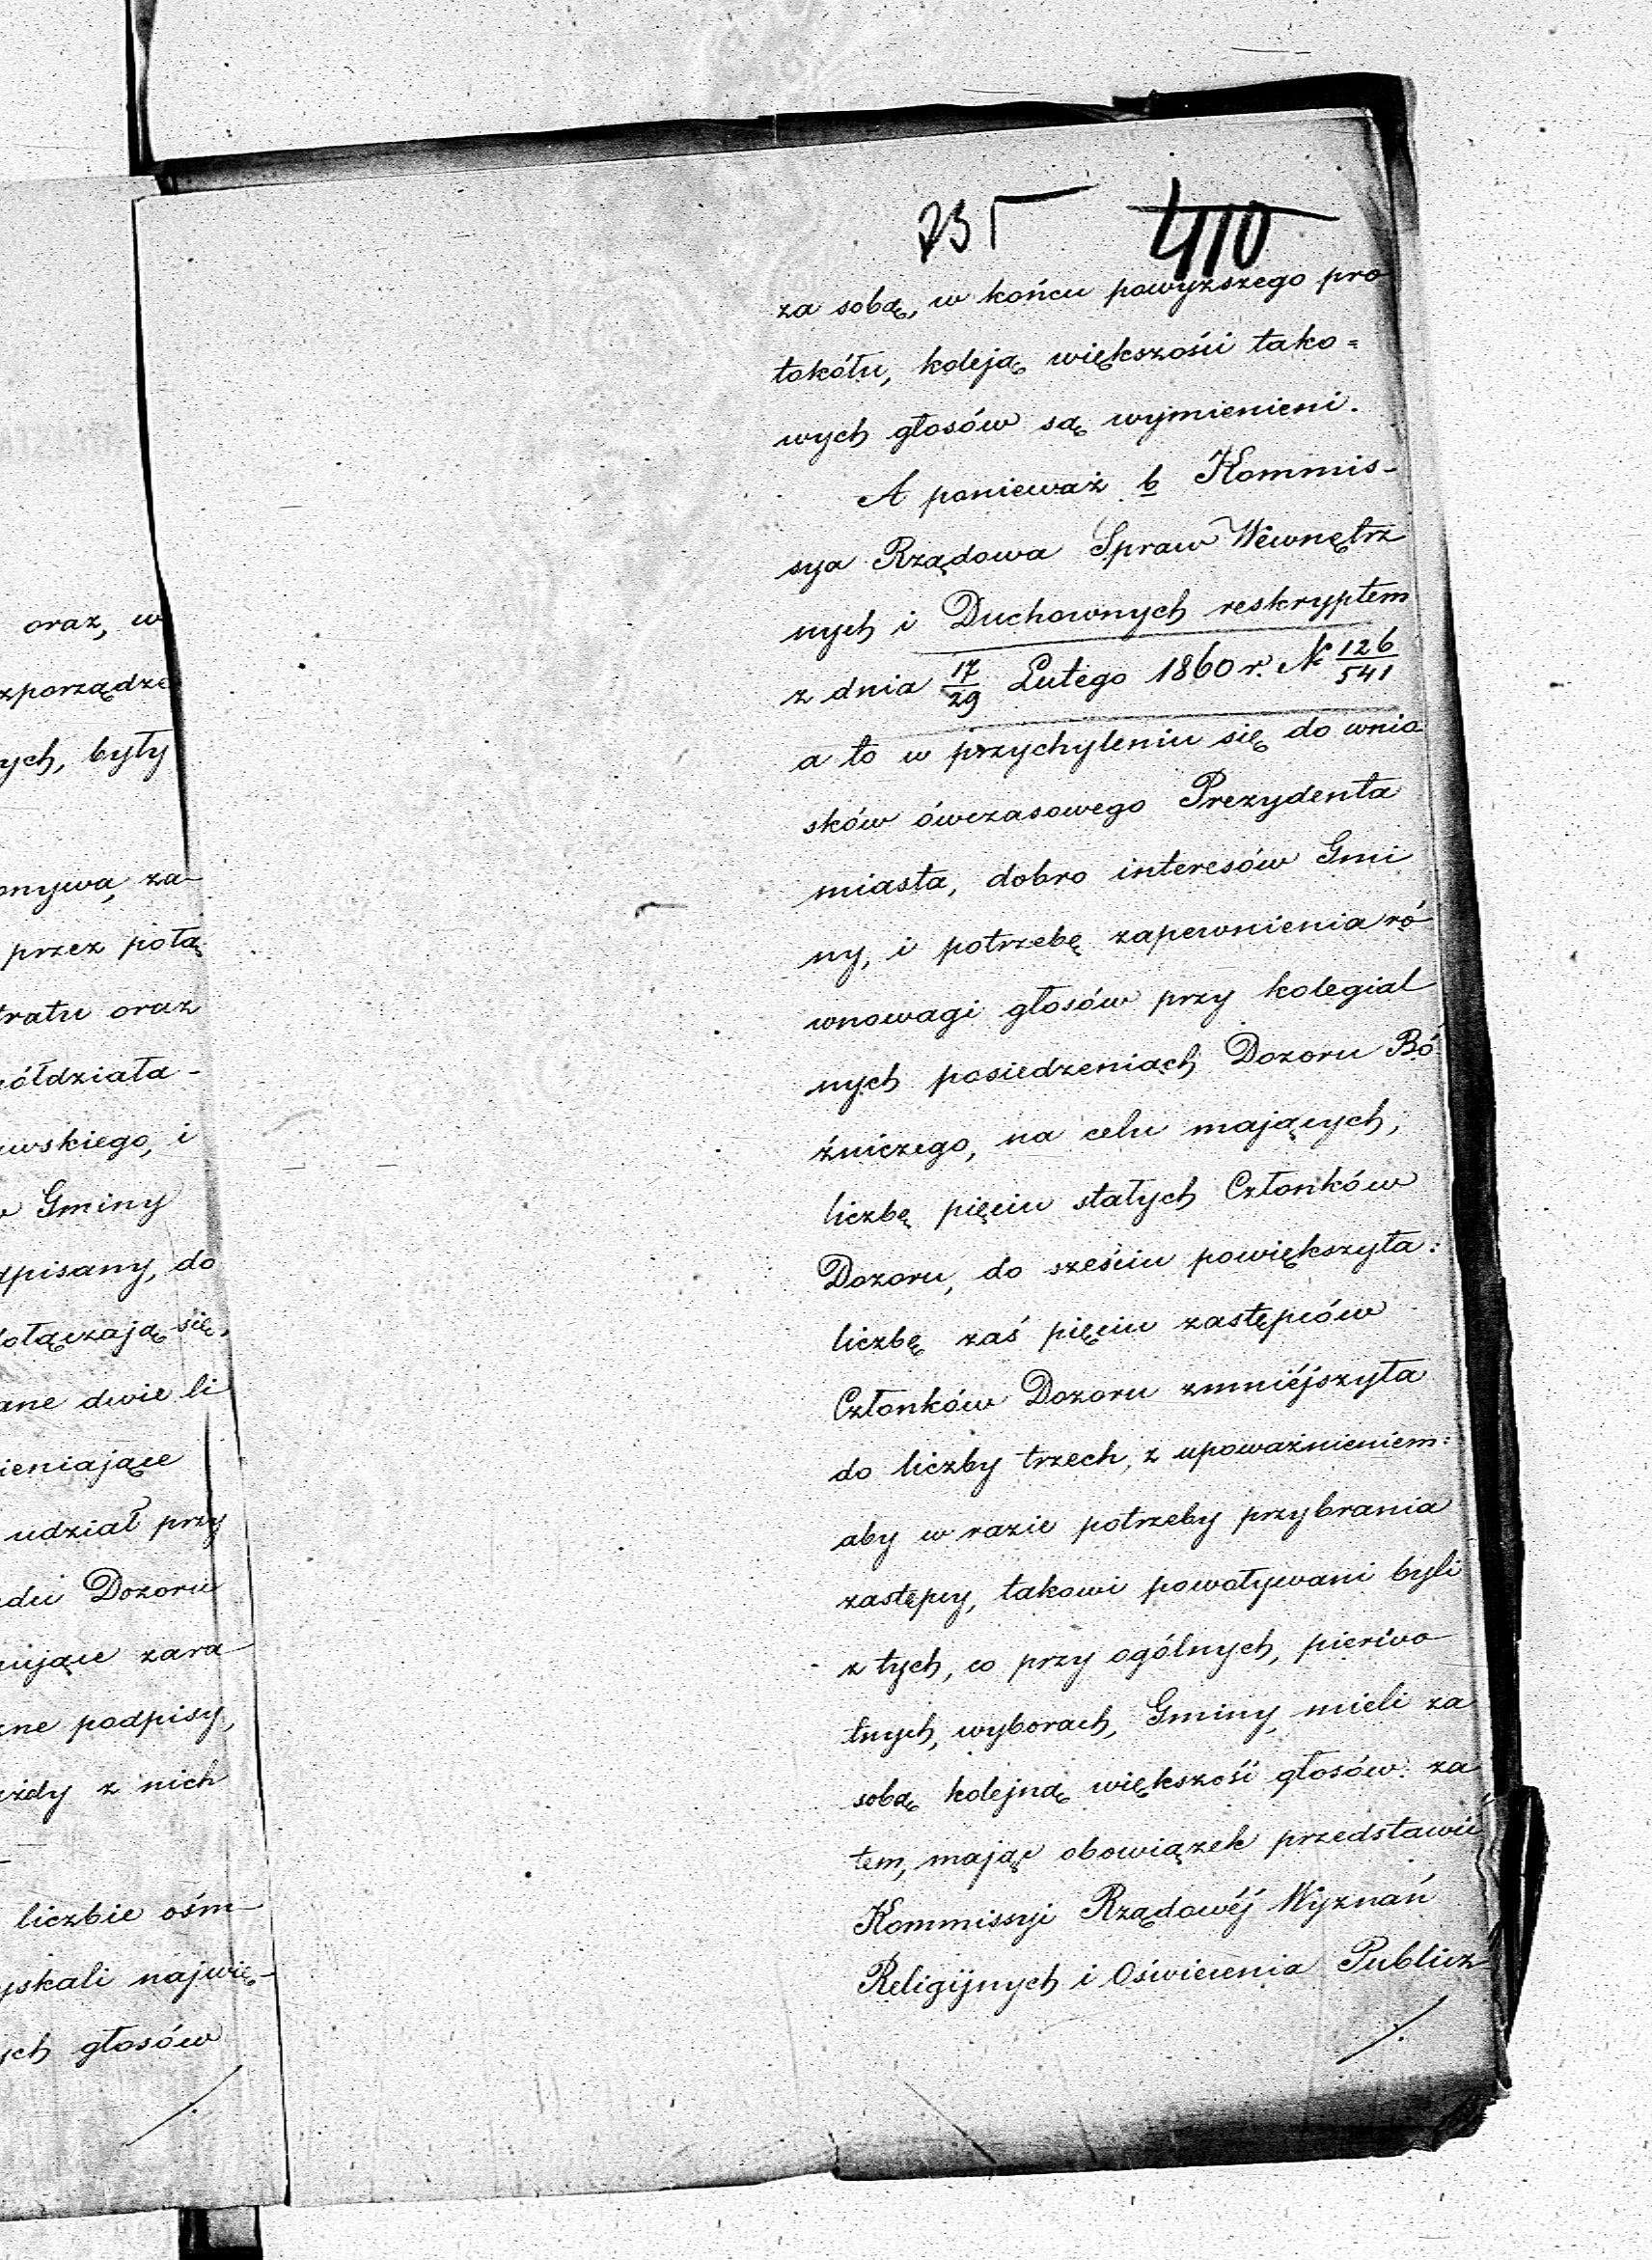 oraz, w
zporządze
ych, były
onywa, za
przez połą
tratu oraz
ółdziała-
awskiego, i
w Gminy
dpisany, do
dołączają się,
ane dwie li
ieniające
udział przy
Dozoru
ujące zara
zne podpisy,
żdy z nich
liczbie ośm
yskali najwię-
ych głosów
410
za sobą, w końcu powyższego pro
tokółu, koleją większości tako=
wych głosów są wymienieni.
A ponieważ b Kommis-
sya Rządowa Spraw Wewnętrz
nych i Duchownych reskryptem
z dnia 17/29 Lutego 1860 r. N 126/541
a to w przychyleniu się do wnio
sków ówczasowego Prezydenta
miasta, dobro interesów Gmi
ny, i potrzebę zapewnienia ró
wnowagi głosów przy kolegial
nych posiedzeniach Dozoru Bó
źniczego, na celu mających,
liczbę pięciu stałych Członków
Dozoru, do sześciu powiększyła:
liczbę zaś pięciu zastępców
Członków Dozoru zmniéjszyła
do liczby trzech, z upoważnieniem:
aby w razie potrzeby przybrania
zastępcy, takowi powoływani byli
z tych, co przy ogólnych, pierwo
tnych, wyborach, Gminy, mieli za
sobą kolejną większość głosów: za
tem, mając obowiązek przedstawić
Kommissyi Rządowéj Wyznań
Religijnych i Oświecenia Publicz